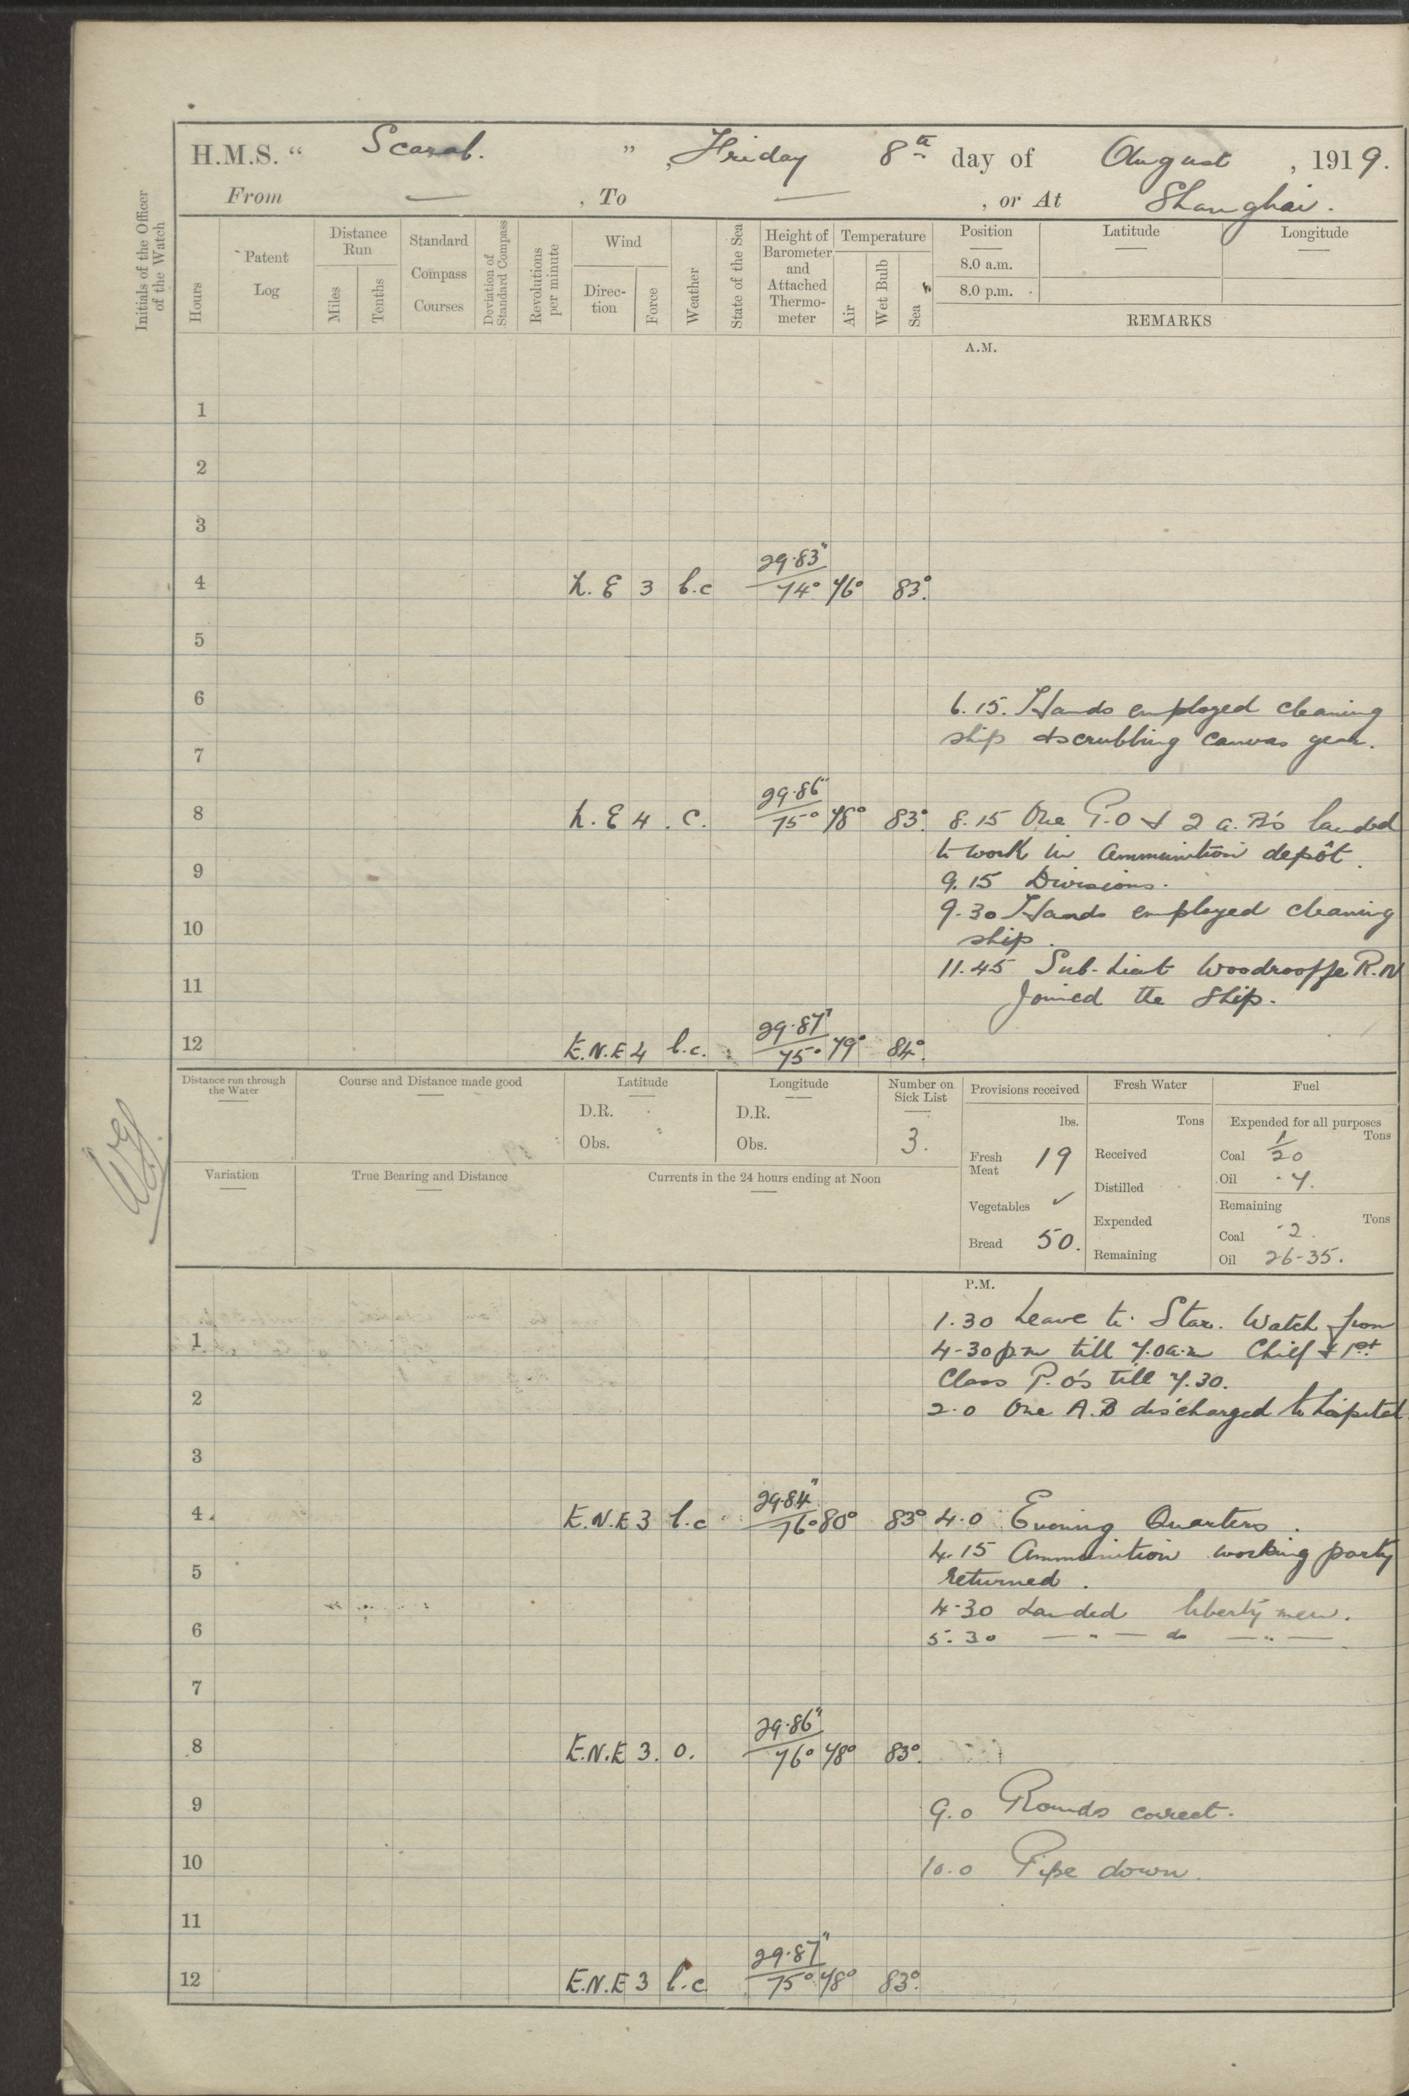 H.M.S. “ Scarab. ” , Friday 8th day of August , 1919.
From — , To — , or At Shanghai.
Initials of the Officer of the Watch
Hours
Patent Log
Distance Run
Miles
Tenths
Standard Compass Courses
Deviation of Standard Compass
Revolutions per minute
Wind
Direction
Force
Weather
State of the Sea
Height of Barometer and Attached Thermometer
Temperature
Air
Wet Bulb
Sea
Position
8.0 a.m.
8.0 p.m.
Latitude
Longitude
REMARKS
A.M.
1
2
3
4 N. E 3 b.c 29.83" 74° 76° 83°.
5
6
6.15. Hands employed cleaning
ship & scrubbing canvas gear.
7
8 N. E 4 . C. 29.86" 75° 78° 83° 8.15 One P.O & 2 A.B's landed
to work in ammunition depôt.
9
9.15 Divisions.
9.30 Hands employed cleaning
10
ship.
11.45 Sub-Lieut Woodrooffe R.N
11
Joined the Ship.
12 E.N.E 4 b.c. 29.87" 75° 79° 84°.
Distance run through the Water
Course and Distance made good
Latitude
D.R.
Obs.
Longitude
D.R.
Obs.
Number on Sick List
3.
Variation
True Bearing and Distance
Currents in the 24 hours ending at Noon
Provisions received
lbs.
Fresh Meat 19
Vegetables ✓
Bread 50.
Fresh Water
Tons
Received
Distilled
Expended
Remaining
Fuel
Expended for all purposes
Tons
Coal 1/20
Oil .7.
Remaining
Tons
Coal .2.
Oil 26-35.
P.M.
1.30 Leave to Star. Watch from
1
4-30pm till 7.0a.m Chief & 1st
Class P.O's till 7.30.
2
2.0 One A.B discharged to hospital
3
4 E.N.E 3 b.c 29.84" 76° 80° 83° 4.0 Evening Quarters.
4.15 Ammunition working party
5
returned.
4-30 Landed liberty men.
6
5.30 — " — do — " —
7
8 E.N.E 3. o. 29.86" 76° 78° 83°.
9
9.0 Rounds correct.
10
10.0 Pipe down.
11
12 E.N.E 3 b.c. 29.87" 75° 78° 83°.